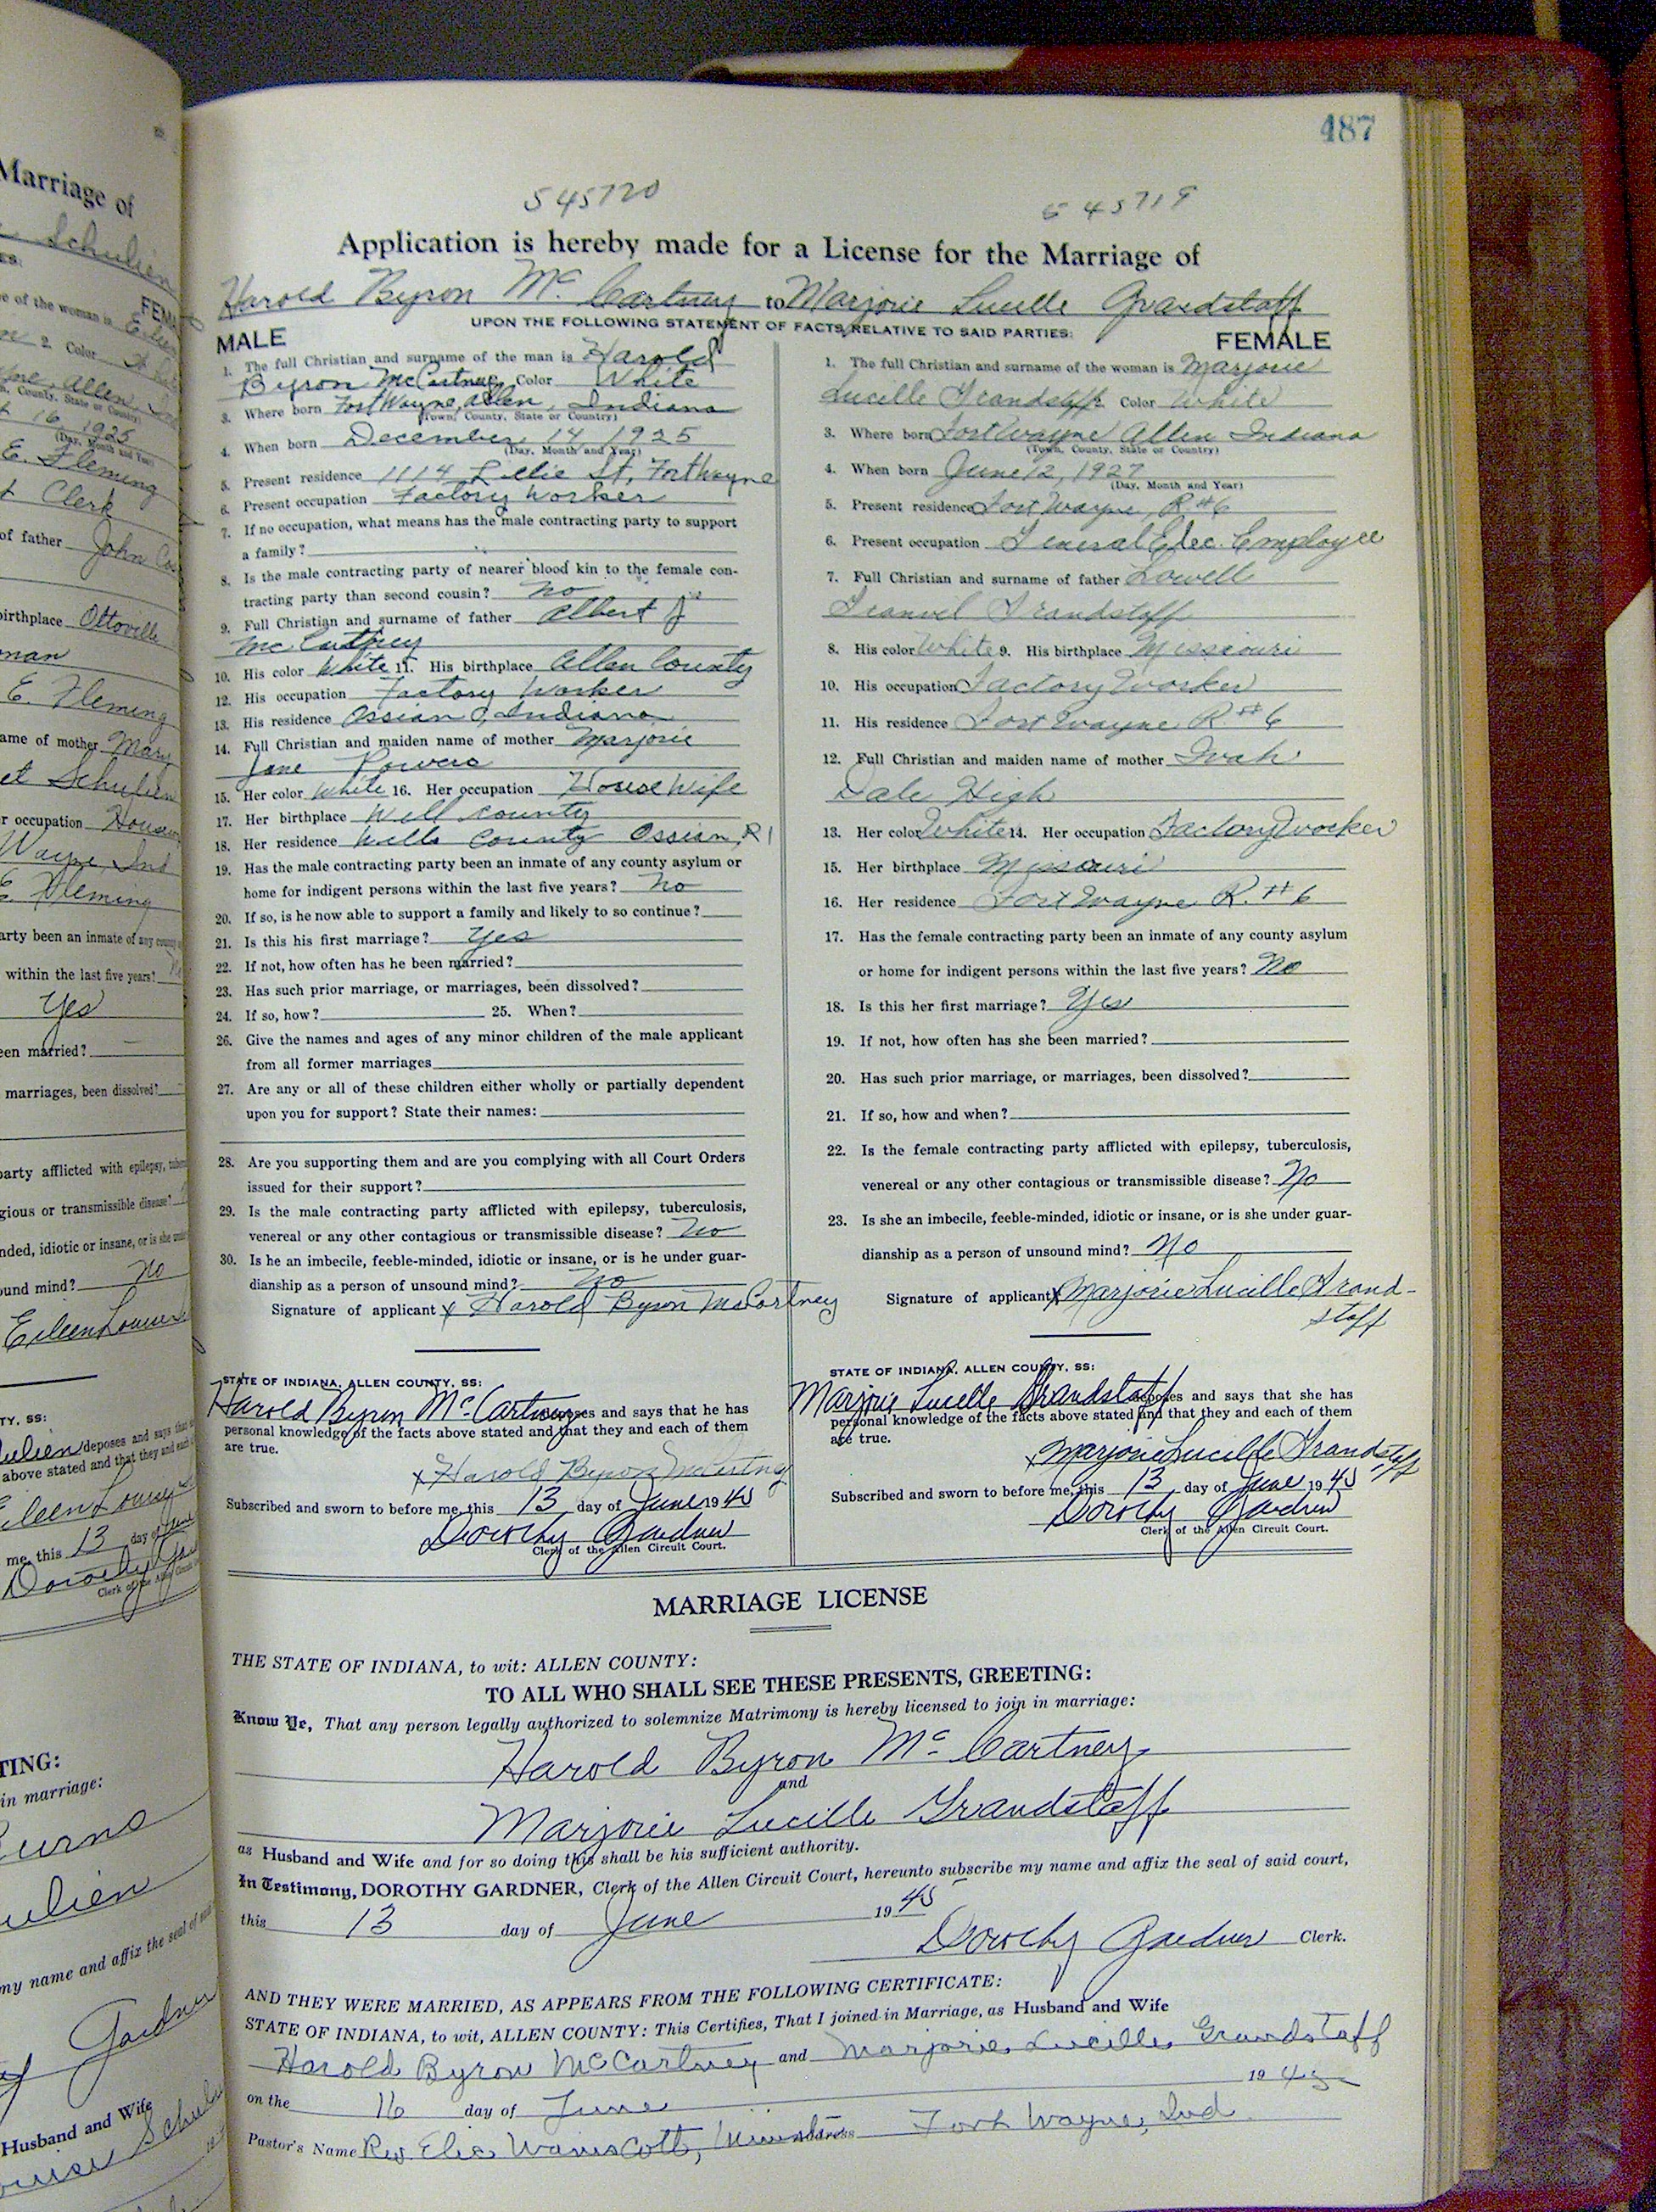 487
545720 545719
Application is hereby made for a License for the Marriage of
Harold Byron Mc Cartney to Marjorie Lucille Grandstaff
UPON THE FOLLOWING STATEMENT OF FACTS RELATIVE TO SAID PARTIES:
MALE
1. The full Christian and surname of the man is Harold
Byron McCartney 2. Color White
3. Where born Fort Wayne, Allen, Indiana
(Town, County, State or Country)
4. When born December 14, 1925
(Day, Month and Year)
5. Present residence 1114 Lillie St, Fort Wayne
6. Present occupation Factory Worker
7. If no occupation, what means has the male contracting party to support
a family?
8. Is the male contracting party of nearer blood kin to the female con-
tracting party than second cousin? No
9. Full Christian and surname of father Albert J
McCartney
10. His color White 11. His birthplace Allen County
12. His occupation Factory Worker
13. His residence Ossian, Indiana
14. Full Christian and maiden name of mother Marjorie
Jane Powers
15. Her color White 16. Her occupation House Wife
17. Her birthplace Well county
18. Her residence Wells County Ossian, R1
19. Has the male contracting party been an inmate of any county asylum or
home for indigent persons within the last five years? No
20. If so, is he now able to support a family and likely to so continue?
21. Is this his first marriage? Yes
22. If not, how often has he been married?
23. Has such prior marriage, or marriages, been dissolved?
24. If so, how? 25. When?
26. Give the names and ages of any minor children of the male applicant
from all former marriages
27. Are any or all of these children either wholly or partially dependent
upon you for support? State their names:
28. Are you supporting them and are you complying with all Court Orders
issued for their support?
29. Is the male contracting party afflicted with epilepsy, tuberculosis,
venereal or any other contagious or transmissible disease? No
30. Is he an imbecile, feeble-minded, idiotic or insane, or is he under guar-
dianship as a person of unsound mind? No
Signature of applicant x Harold Byron McCartney
STATE OF INDIANA, ALLEN COUNTY, SS:
Harold Byron McCartney deposes and says that he has
personal knowledge of the facts above stated and that they and each of them
are true.
x Harold Byron McCartney
Subscribed and sworn to before me, this 13 day of June 1945
Dorothy Gardner
Clerk of the Allen Circuit Court.
FEMALE
1. The full Christian and surname of the woman is Marjorie
Lucille Grandstaff 2. Color White
3. Where born Fort Wayne Allen Indiana
(Town, County, State or Country)
4. When born June 12, 1927
(Day, Month and Year)
5. Present residence Fort Wayne, R #6
6. Present occupation General Elec. Employee
7. Full Christian and surname of father Lowell
Grandstaff
8. His color White 9. His birthplace Missouri
10. His occupation Factory Worker
11. His residence Fort Wayne R. #6
12. Full Christian and maiden name of mother Ivah
Dale High
13. Her color White 14. Her occupation Factory Worker
15. Her birthplace Missouri
16. Her residence Fort Wayne R. #6
17. Has the female contracting party been an inmate of any county asylum
or home for indigent persons within the last five years? No
18. Is this her first marriage? Yes
19. If not, how often has she been married?
20. Has such prior marriage, or marriages, been dissolved?
21. If so, how and when?
22. Is the female contracting party afflicted with epilepsy, tuberculosis,
venereal or any other contagious or transmissible disease? No
23. Is she an imbecile, feeble-minded, idiotic or insane, or is she under guar-
dianship as a person of unsound mind? No
Signature of applicant x Marjorie Lucille Grand-
staff
STATE OF INDIANA, ALLEN COUNTY, SS:
Marjorie Lucille Grandstaff deposes and says that she has
personal knowledge of the facts above stated and that they and each of them
are true.
x Marjorie Lucille Grandstaff
Subscribed and sworn to before me, this 13 day of June 1945
Dorothy Gardner
Clerk of the Allen Circuit Court.
MARRIAGE LICENSE
THE STATE OF INDIANA, to wit: ALLEN COUNTY:
TO ALL WHO SHALL SEE THESE PRESENTS, GREETING:
Know Ye, That any person legally authorized to solemnize Matrimony is hereby licensed to join in marriage:
Harold Byron Mc Cartney
and
Marjorie Lucille Grandstaff
as Husband and Wife and for so doing this shall be his sufficient authority.
In Testimony, DOROTHY GARDNER, Clerk of the Allen Circuit Court, hereunto subscribe my name and affix the seal of said court,
this 13 day of June 1945
Dorothy Gardner Clerk.
AND THEY WERE MARRIED, AS APPEARS FROM THE FOLLOWING CERTIFICATE:
STATE OF INDIANA, to wit, ALLEN COUNTY: This Certifies, That I joined in Marriage, as Husband and Wife
Harold Byron McCartney and Marjorie Lucille Grandstaff
on the 16 day of June 1945
Pastor's Name Rev. Wainscott, Minister Address Fort Wayne, Ind.